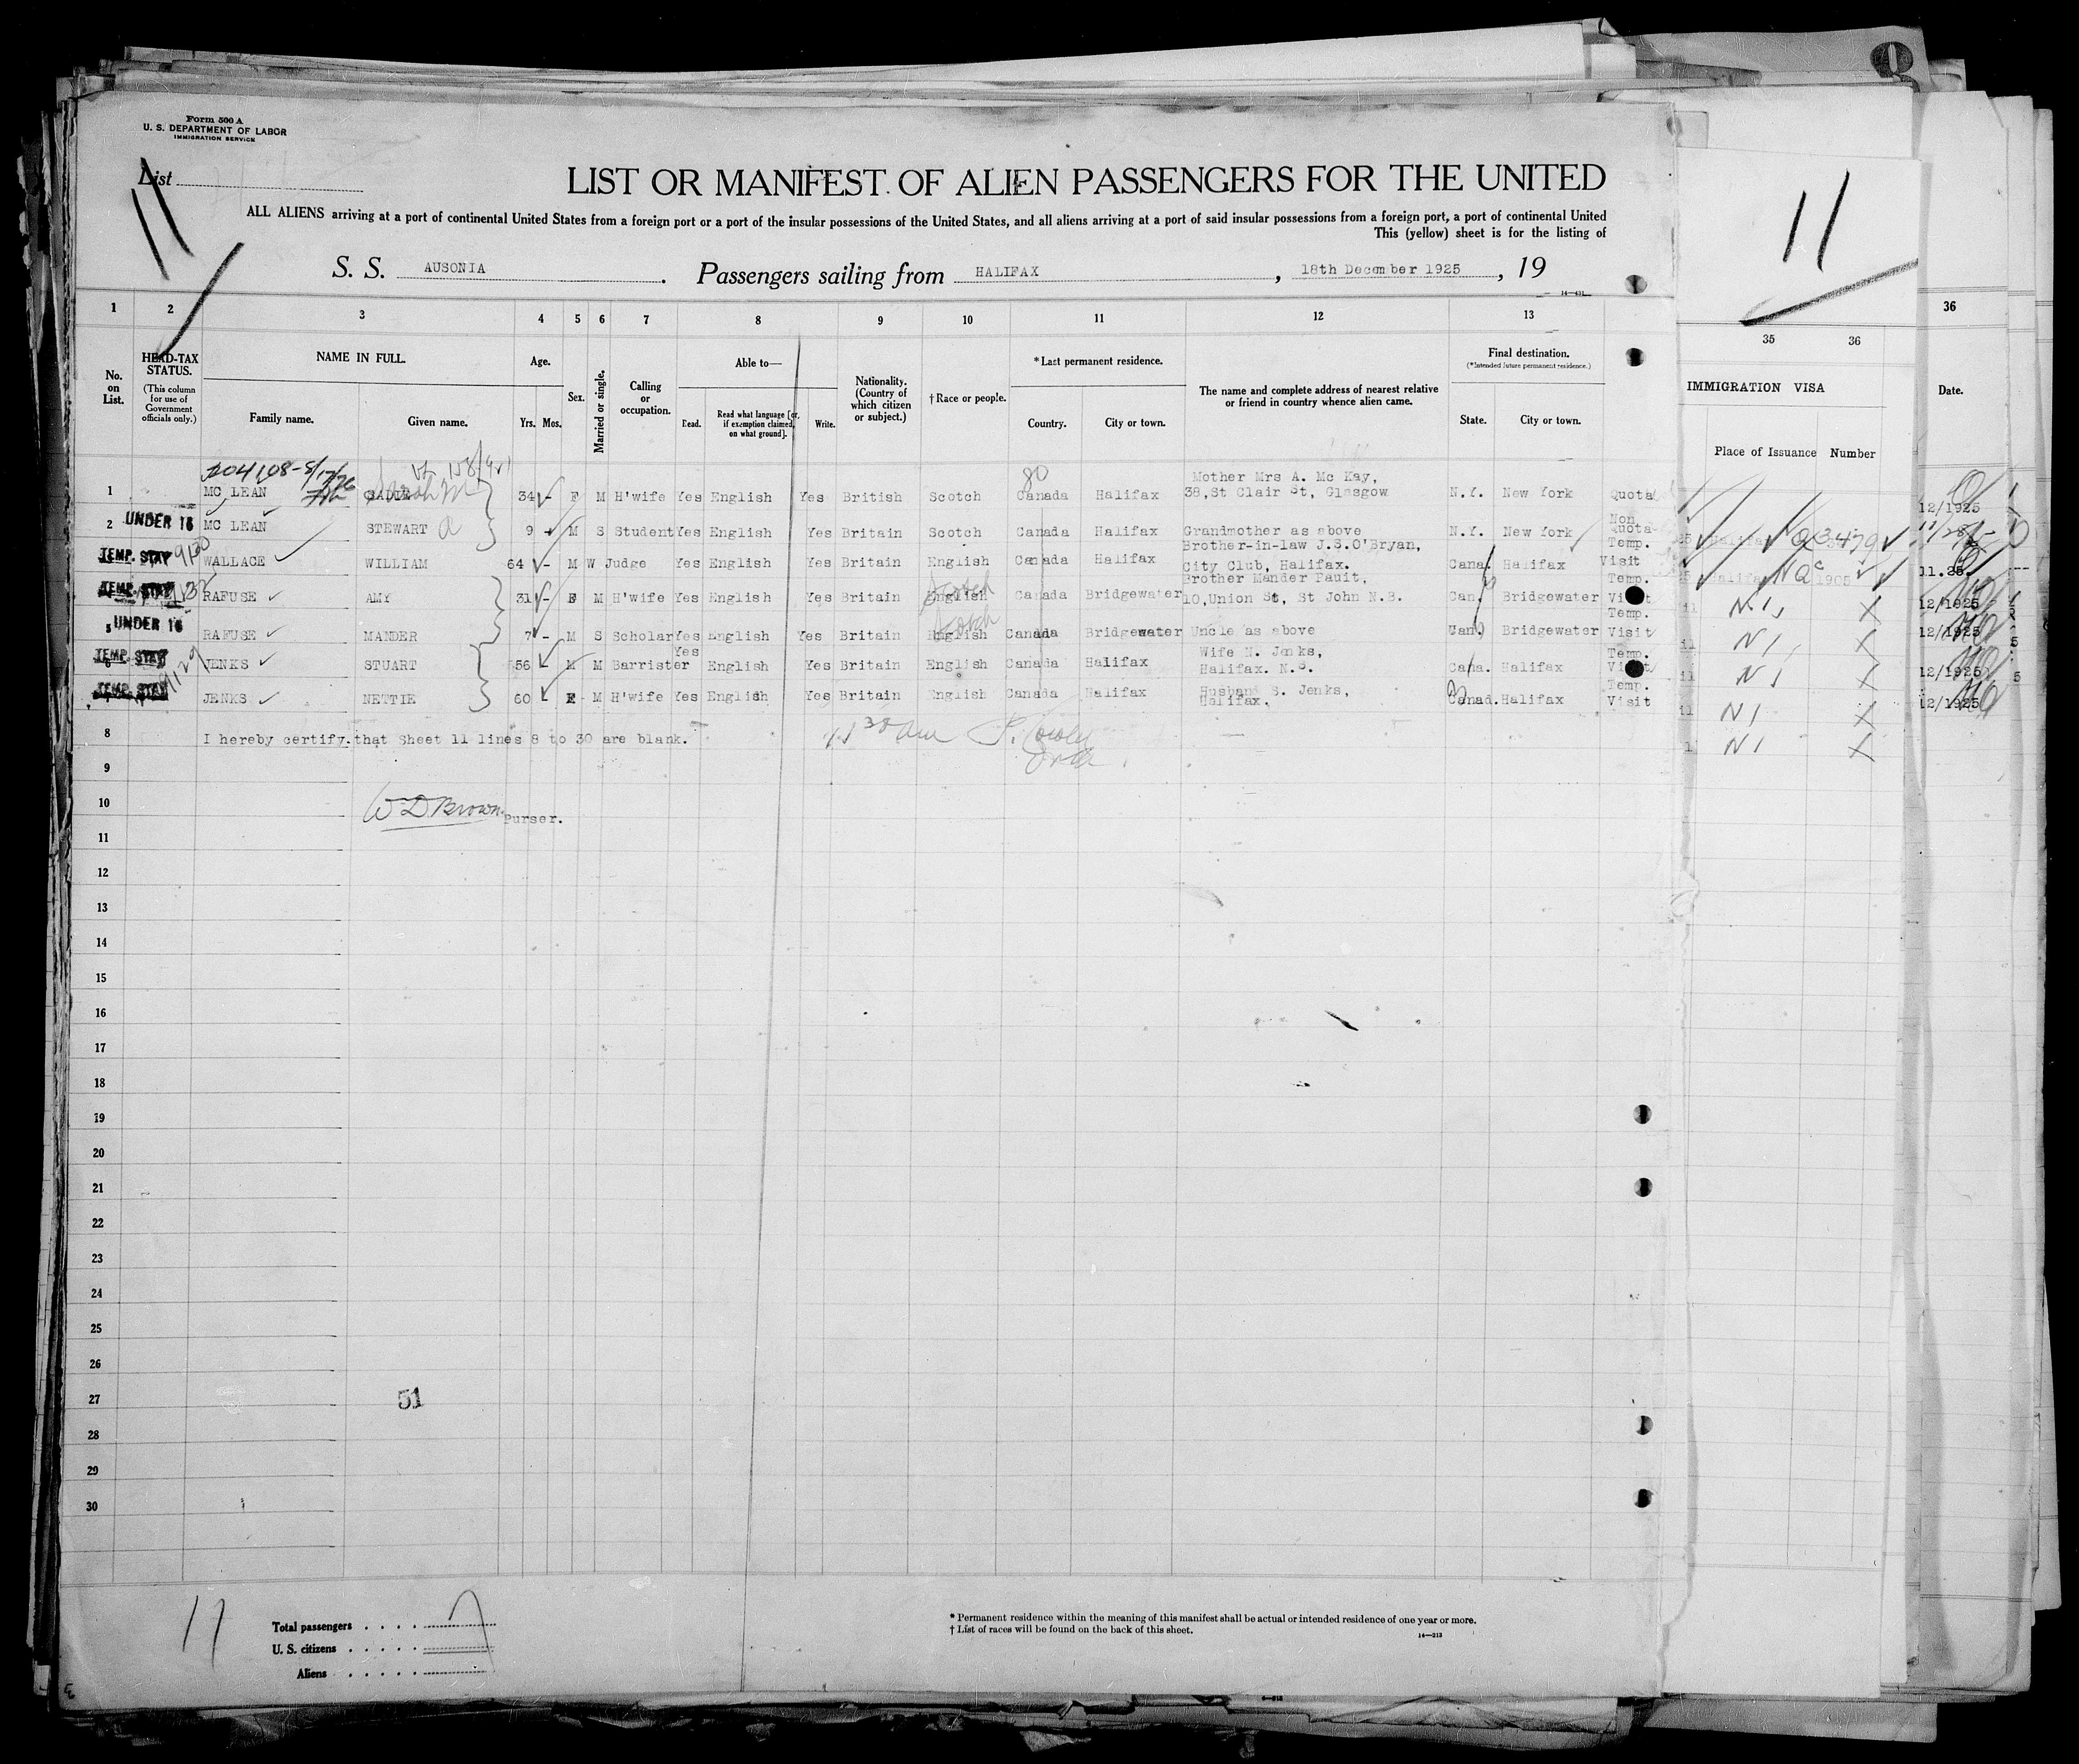 Form 500 A
U. S. DEPARTMENT OF LABOR
IMMIGRATION SERVICE
List
11
LIST OR MANIFEST OF ALIEN PASSENGERS FOR THE UNITED
ALL ALIENS arriving at a port of continental United States from a foreign port or a port of the insular possessions of the United States, and all aliens arriving at a port of said insular possessions from a foreign port, a port of continental United
This (yellow) sheet is for the listing of
S. S. AUSONIA. Passengers sailing from HALIFAX, 18th December 1925, 19
11
1 2 3 4 5 6 7 8 9 10 11 12 13 35 36 36
No. on List.
HEAD-TAX STATUS.
(This column for use of Government officials only.)
NAME IN FULL.
Family name. Given name.
Age.
Yrs. Mos.
Sex.
Married or single.
Calling or occupation.
Able to—
Read. Read what language [or, if exemption claimed, on what ground]. Write.
Nationality. (Country of which citizen or subject.)
† Race or people.
* Last permanent residence.
Country. City or town.
The name and complete address of nearest relative or friend in country whence alien came.
Final destination.
(* Intended future permanent residence.)
State. City or town.
IMMIGRATION VISA
Place of Issuance Number
Date.
1 MC LEAN 34 - F M H'wife Yes English Yes British Scotch Canada Halifax Mother Mrs A. Mc Kay, 38,St Clair St, Glasgow N.Y. New York Quota 12/1925
2 UNDER 16 MC LEAN STEWART A 9 - M S Student Yes English Yes Britain Scotch Canada Halifax Grandmother as above N.Y. New York Non Quota
TEMP. STAY WALLACE WILLIAM 64 - M W Judge Yes English Yes Britain English Canada Halifax Brother-in-law J.S.O'Bryan, City Club, Halifax. Cana. Halifax Temp. Visit 11.25
TEMP. STAY RAFUSE AMY 31 - F M H'wife Yes English Yes Britain English Scotch Canada Bridgewater Brother Mander Pauit, 10,Union St, St John N.B. Can. Bridgewater Temp. Visit 12/1925
5 UNDER 16 RAFUSE MANDER 7 - M S Scholar Yes English Yes Britain English Scotch Canada Bridgewater Uncle as above Can. Bridgewater Temp. Visit 12/1925
TEMP. STAY JENKS STUART 56 M M Barrister Yes English Yes Britain English Canada Halifax Wife N. Jenks, Halifax. N.S. Cana. Halifax Temp. Visit 12/1925
TEMP. STAY JENKS NETTIE 60 F - M H'wife Yes English Yes Britain English Canada Halifax Husband S. Jenks, Halifax. Canad. Halifax Temp. Visit 12/1925
8 I hereby certify that Sheet 11 lines 8 to 30 are blank.
9
10 W D Brown Purser.
11
12
13
14
15
16
17
18
19
20
21
22
23
24
25
26
27 51
28
29
30
11
Total passengers . . . . 7
U. S. citizens . . . . .
Aliens . . . . .
* Permanent residence within the meaning of this manifest shall be actual or intended residence of one year or more.
† List of races will be found on the back of this sheet.
14—213